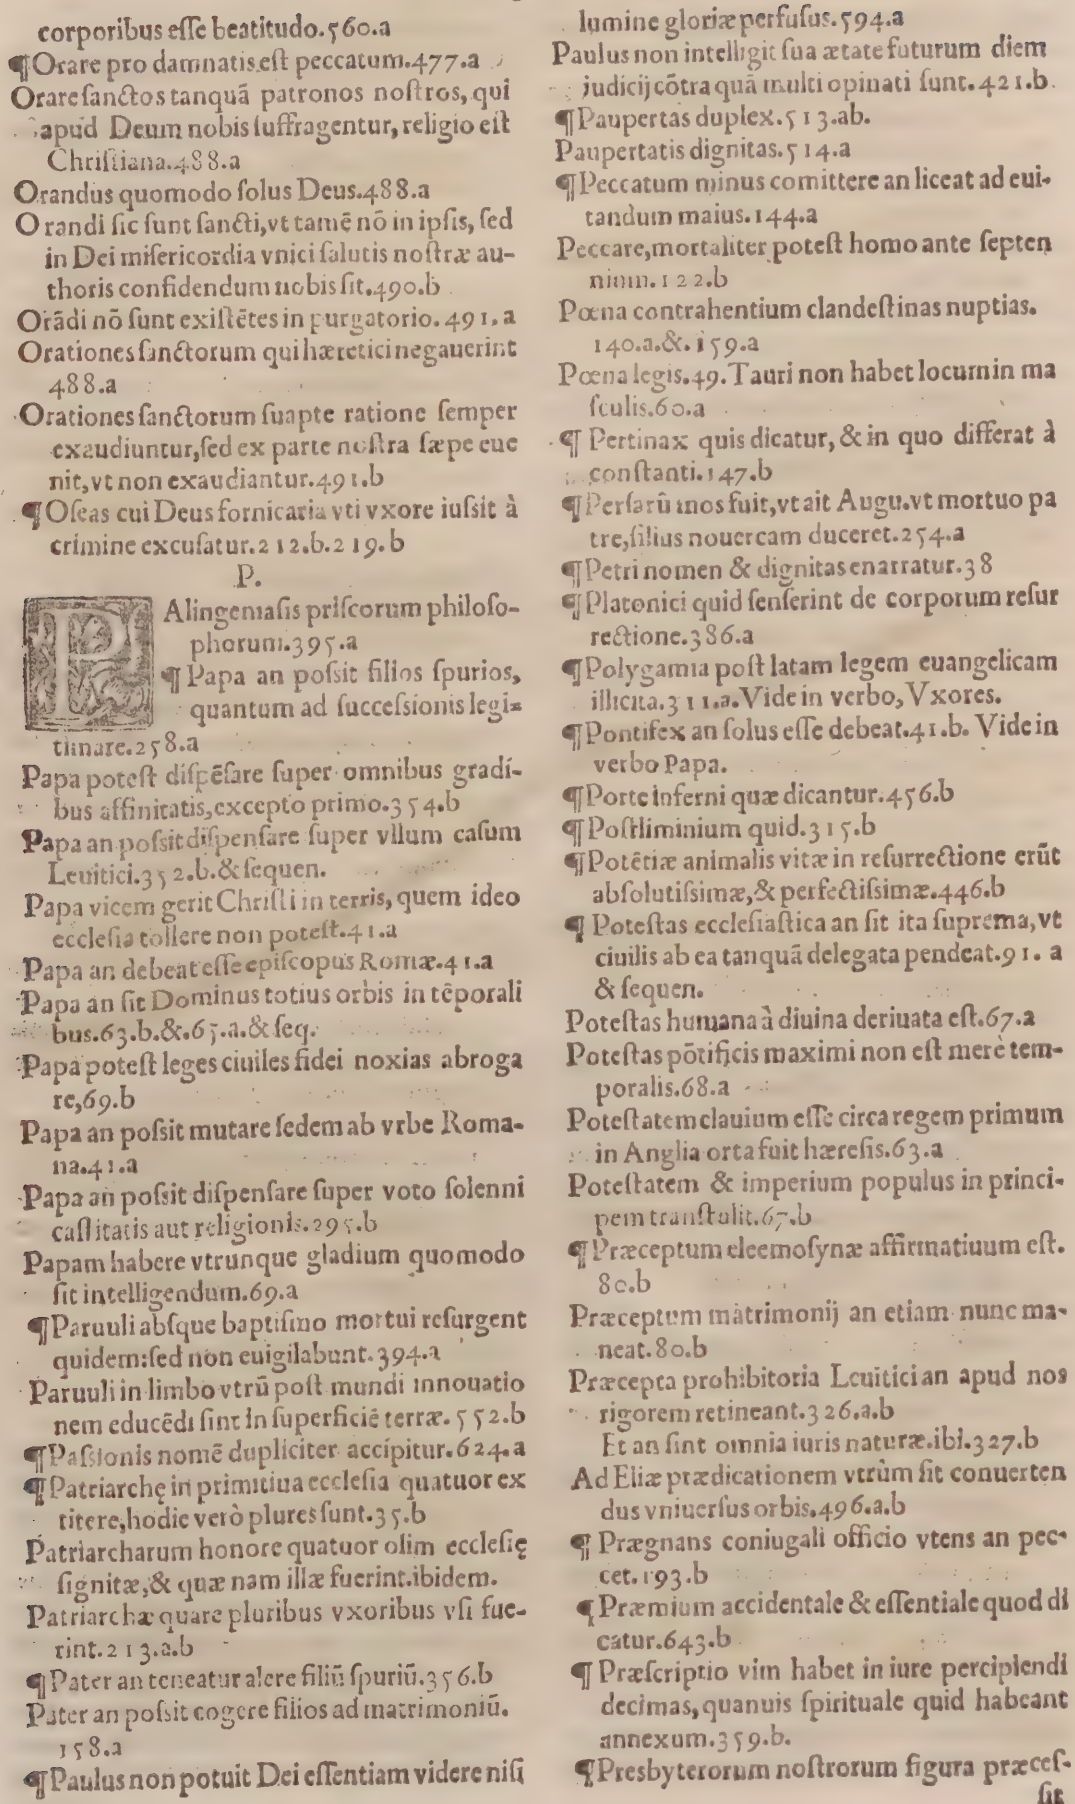 corporibus eſſe beatitudo.560.a
¶Orare pro damnatis eſt peccatum.477.a
Orare ſanctos tanquã patronos noſtros, qui
apud Deum nobis ſuffragentur, religio eſt
Chriſtiana.488.a
Orandus quomodo ſolus Deus.488.a
Orandi ſic ſunt ſancti,vt tamẽ nõ in ipſis, ſed
in Dei miſericordia vnici ſalutis noſtræ au-
thoris confidendum nobis ſit.490.b
Orãdi nõ ſunt exiſtẽtes in purgatorio. 491.a
Orationes ſanctorum qui hæretici negauerint
488.a
Orationes ſanctorum ſuapte ratione ſemper
exaudiuntur,ſed ex parte noſtra ſæpe eue
nit,vt non exaudiantur.491.b
¶Oſeas cui Deus fornicaria vti vxore iuſsit à
crimine excuſatur.212.b.219.b
P.
PAlingeniaſis priſcorum philoſo-
phorum.395.a
¶Papa an poſsit filios ſpurios,
quantum ad ſucceſsionis legi-
timare.258.a
Papa poteſt diſpẽſare ſuper omnibus gradi-
bus affinitatis,excepto primo.354.b
Papa an poſsit diſpenſare ſuper vllum caſum
Leuitici.352.b.&ſequen.
Papa vicem gerit Chriſti in terris, quem ideo
eccleſia tollere non poteſt.41.a
Papa an debeat eſſe epiſcopus Romæ.41.a
Papa an ſit Dominus totius orbis in tẽporali
bus.63.b.&.65.a.& ſeq.
Papa poteſt leges ciuiles fidei noxias abroga
re,69.b
Papa an poſsit mutare ſedem ab vrbe Roma-
na.41.a
Papa an poſsit diſpenſare ſuper voto ſolenni
caſtitatis aut religionis.295.b
Papam habere vtrunque gladium quomodo
ſit intelligendum.69.a
¶Paruuli abſque baptiſmo mortui reſurgent
quidem:ſed non euigilabunt.394.a
Paruuli in limbo vtrũ poſt mundi innouatio
nem educẽdi ſint in ſuperficiẽ terræ. 552.b
¶Paſsionis nomẽ dupliciter accipitur.624.a
¶Patriarchę in primitiua eccleſia quatuor ex
titere,hodie verò plures ſunt.35.b
Patriarcharum honore quatuor olim eccleſię
ſignitæ,& quæ nam illæ fuerint.ibidem.
Patriarchæ quare pluribus vxoribus vſi fue-
rint.213.a.b
¶Pater an teneatur alere filiũ ſpuriũ.356.b
Pater an poſsit cogere filios ad matrimoniũ.
158.a
¶Paulus non potuit Dei eſſentiam videre niſi
lumine gloriæ perfuſus.594.a
Paulus non intelligit ſua ætate futurum diem
judicij cõtra quã multi opinati ſunt.421.b.
¶Paupertas duplex.513.ab.
Paupertatis dignitas.514.a
¶Peccatum minus comittere an liceat ad eui-
tandum maius.144.a
Peccare,mortaliter poteſt homo ante ſepten
nium.122.b
Pœna contrahentium clandeſtinas nuptias.
140.a.&.159.a
Pœna legis.49.Tauri non habet locum in ma
ſculis.60.a
¶ Pertinax quis dicatur, & in quo differat à
conſtanti.147.b
¶Perſarũ mos fuit,vt ait Augu.vt mortuo pa
tre,filius nouercam duceret.254.a
¶Petri nomen & dignitas enarratur.38
¶Platonici quid ſenſerint de corporum reſur
rectione.386.a
¶Polygamia poſt latam legem euangelicam
illicita.311.a.Vide in verbo, Vxores.
¶Pontifex an ſolus eſſe debeat.41.b. Vide in
verbo Papa.
¶Porte inferni quæ dicantur.456.b
¶Poſtliminium quid.315.b
¶Potẽtiæ animalis vitæ in reſurrectione erũt
abſolutiſsimæ,& perfectiſsimæ.446.b
¶ Poteſtas eccleſiaſtica an ſit ita ſuprema,vt
ciuilis ab ea tanquã delegata pendeat.91. a
& ſequen.
Poteſtas humana à diuina deriuata eſt.67.a
Poteſtas põtificis maximi non eſt merè tem-
poralis.68.a
Poteſtatem clauium eſſe circa regem primum
in Anglia orta fuit hæreſis.63.a
Poteſtatem & imperium populus in princi-
pem tranſtulit.67.b
¶Præceptum eleemoſynæ affirmatiuum eſt.
80.b
Præceptum matrimonij an etiam nunc ma-
neat.80.b
Præcepta prohibitoria Leuitici an apud nos
rigorem retineant.326.a.b
Et an ſint omnia iuris naturæ.ibi.327.b
Ad Eliæ prædicationem vtrùm ſit conuerten
dus vniuerſus orbis.496.a.b
¶ Prægnans coniugali officio vtens an pec-
cet.193.b
¶Præmium accidentale & eſſentiale quod di
catur.643.b
¶ Præſcriptio vim habet in iure percipiendi
decimas,quanuis ſpirituale quid habeant
annexum.359.b.
¶Presbyterorum noſtrorum figura præceſ-
ſit